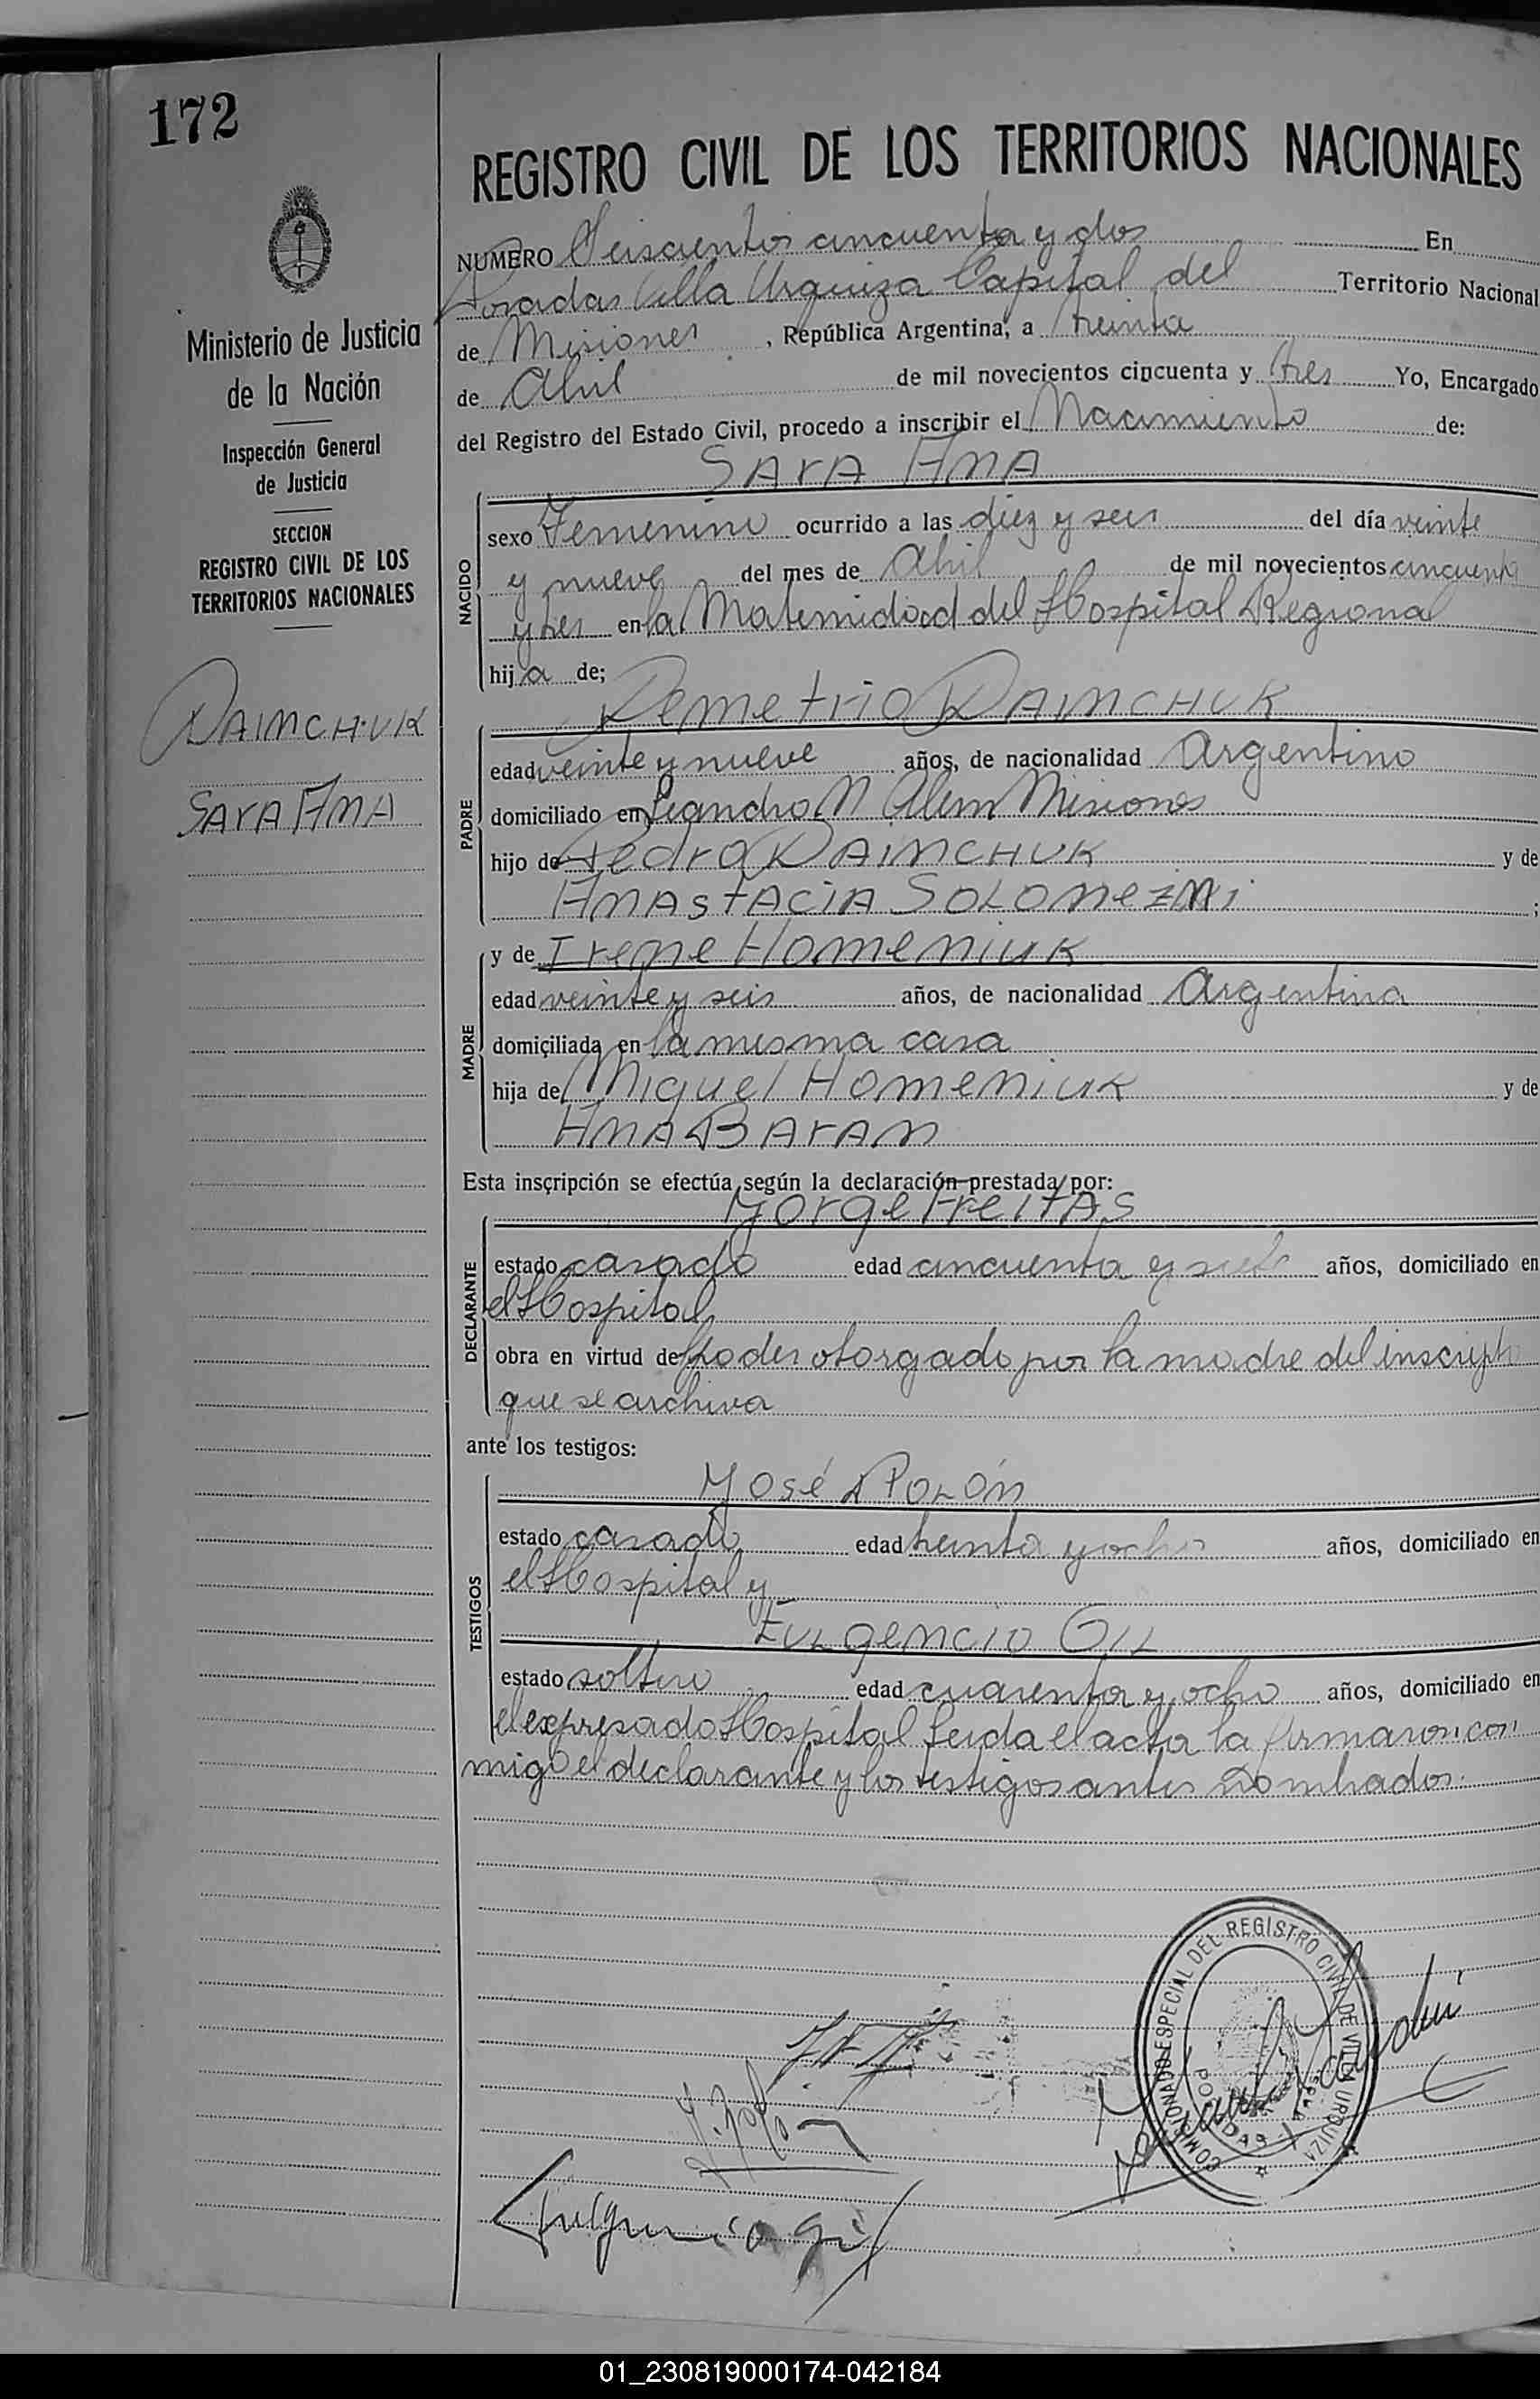 172
Ministerio de Justicia
de la Nación
Inspección General
de Justicia
SECCION
REGISTRO CIVIL DE LOS
TERRITORIOS NACIONALES
DAIMCHUK
SARA ANA
REGISTRO CIVIL DE LOS TERRITORIOS NACIONALES
NUMERO Seiscientos cincuenta y dos En
Posadas Villa Urquiza Capital del Territorio Nacional
de Misiones, República Argentina, a treinta
de Abril de mil novecientos cincuenta y tres Yo, Encargado
del Registro del Estado Civil, procedo a inscribir el Nacimiento de:
SARA ANA
NACIDO
sexo Femenino ocurrido a las diez y seis del día veinte
y nueve del mes de Abril de mil novecientos cincuenta
y tres en la Maternidad del Hospital Regional
hija de;
Demetrio DAIMCHUK
PADRE
edad veinte y nueve años, de nacionalidad Argentino
domiciliado en Leandro N Alem Misiones
hijo de Pedro DAIMCHUK y de
ANASTACIA ;
MADRE
y de Irene HOMENIUK
edad veinte y seis años, de nacionalidad Argentina
domiciliada en la misma casa
hija de Miguel HOMENIUK y de
ANA BARAN
Esta inscripción se efectúa según la declaración prestada por:
Jorge FREITAS
DECLARANTE
estado casado edad cincuenta y siete años, domiciliado en
el Hospital
obra en virtud de poder otorgado por la madre del inscripto
que se archiva
ante los testigos:
TESTIGOS
José POLÓN
estado casado edad treinta y ocho años, domiciliado en
el Hospital y
FULGENCIO GIL
estado soltero edad cuarenta y ocho años, domiciliado en
el expresado Hospital Leida el acta la firmaron con
migo el declarante y los testigos antes nombrados.
COMISIONADO ESPECIAL DEL REGISTRO CIVIL DE VILLA URQUIZA
POSADAS
J. Polón
Fulgencio Gil
01_230819000174-042184